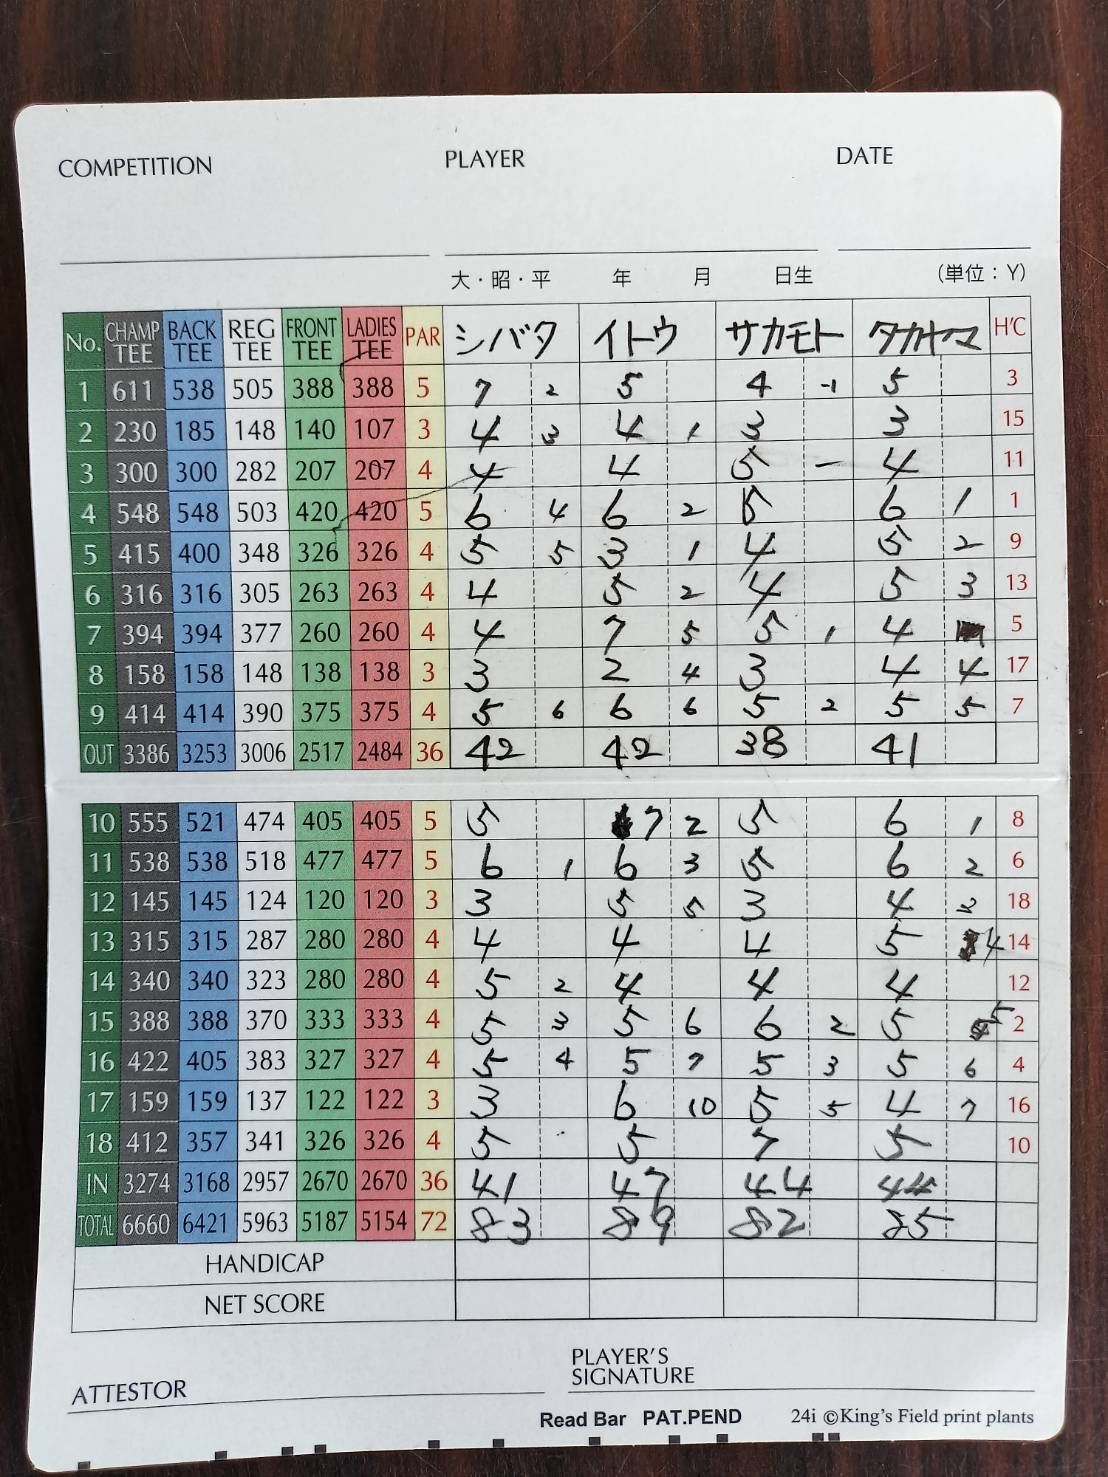 COMPETITION PLAYER DATE
大・昭・平 年 月 日生 (単位：Y)
No. CHAMP TEE BACK TEE REG TEE FRONT TEE LADIES TEE PAR シバタ イトウ サカモト タカヤマ H'C
1 611 538 505 388 388 5 7 2 5 4 -1 5 3
2 230 185 148 140 107 3 4 3 4 1 3 3 15
3 300 300 282 207 207 4 4 4 5 - 4 11
4 548 548 503 420 420 5 6 4 6 2 5 6 1 1
5 415 400 348 326 326 4 5 5 3 1 4 5 2 9
6 316 316 305 263 263 4 4 5 2 4 5 3 13
7 394 394 377 260 260 4 4 7 5 5 1 4 5
8 158 158 148 138 138 3 3 2 4 3 4 4 17
9 414 414 390 375 375 4 5 6 6 6 5 2 5 5 7
OUT 3386 3253 3006 2517 2484 36 42 42 38 41
10 555 521 474 405 405 5 5 7 2 5 6 1 8
11 538 538 518 477 477 5 6 1 6 3 5 6 2 6
12 145 145 124 120 120 3 3 5 5 3 4 3 18
13 315 315 287 280 280 4 4 4 4 5 4 14
14 340 340 323 280 280 4 5 2 4 4 4 12
15 388 388 370 333 333 4 5 3 5 6 6 2 5 5 2
16 422 405 383 327 327 4 5 4 5 7 5 3 5 6 4
17 159 159 137 122 122 3 3 6 10 5 5 4 7 16
18 412 357 341 326 326 4 5 5 7 5 10
IN 3274 3168 2957 2670 2670 36 41 47 44 44
TOTAL 6660 6421 5963 5187 5154 72 83 89 82 85
HANDICAP
NET SCORE
ATTESTOR PLAYER'S SIGNATURE
Read Bar PAT.PEND 24i ©King's Field print plants